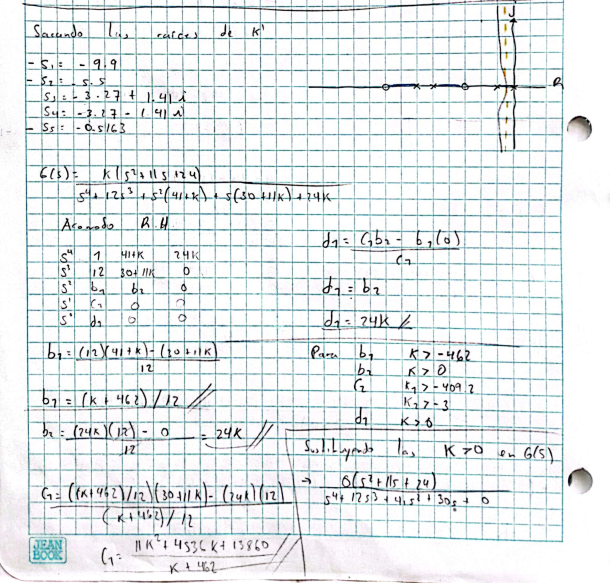 J
Sacando las raíces de K'
- S₁ = - 9.9
- S₂ = - 5.5
S₃ = - 3.27 + 1.41 i
S₄ = - 3.27 - 1.41 i
- S₅ = - 0.5163
R
G(s) = K(s²+11s+24) / s⁴+12s³+s²(41+K)+s(30+11K)+24K
Acomodo R.H.
s⁴ 1 41+K 24K
s³ 12 30+11K 0
s² b₁ b₂ 0
s¹ C₁ 0 0
s⁰ d₁ 0 0
d₁ = C₁b₂ - b₁(0) / C₁
d₁ = b₂
d₁ = 24K //
b₁ = (12)(41+K) - (30+11K) / 12
b₁ = (K+462)/12 //
b₂ = (24K)(12) - 0 / 12 = 24K //
C₁ = ((K+462)/12)(30+11K) - (24K)(12) / (K+462)/12
C₁ = 11K²+4536K+13860 / K+462
Para b₁ K > -462
b₂ K > 0
C₂ K₁ > -409.2
K₂ > -3
d₁ K > 0
Sustituyendo las K > 0 en G(S)
→ 0(s²+11s+24) / s⁴+12s³+41s²+30s+0
JEAN BOOK